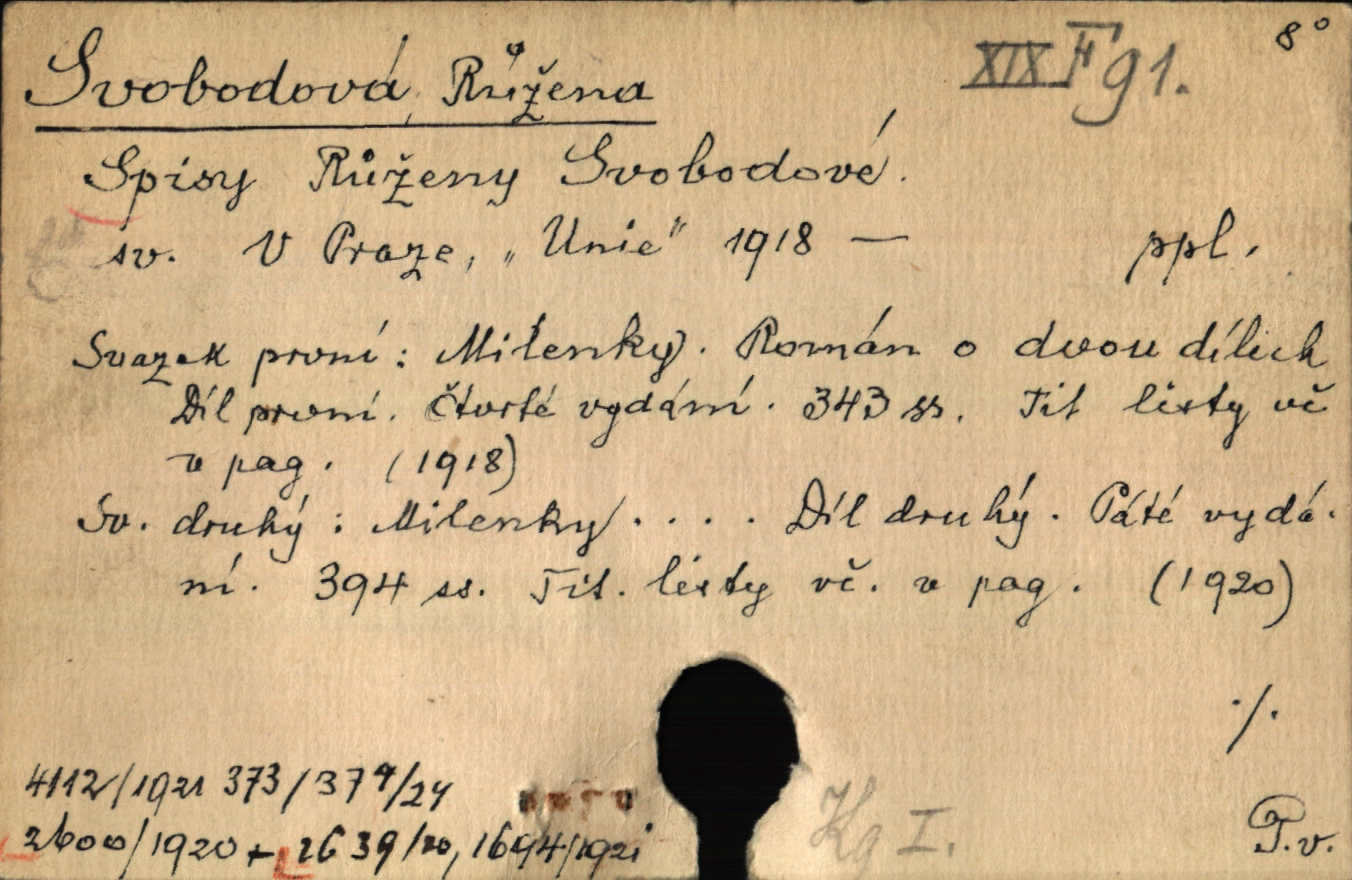 8°
Svobodová, Růžena XIX F 91.
Spisy Růženy Svobodové.
sv. V Praze, „Unie" 1918 — ppl.
Svazek první: Milenky. Román o dvou dílech
Díl první. Čtvrté vydání. 343 ss. Tit listy vč
v pag. (1918)
Sv. druhý: Milenky. . . . Díl druhý. Páté vydá-
ní. 394 ss. Tit. listy vč. v pag. (1920)
./.
4112/1921 373/379/24
2600/1920 + 2639/20, 1694/1921
Kg I.
P.v.